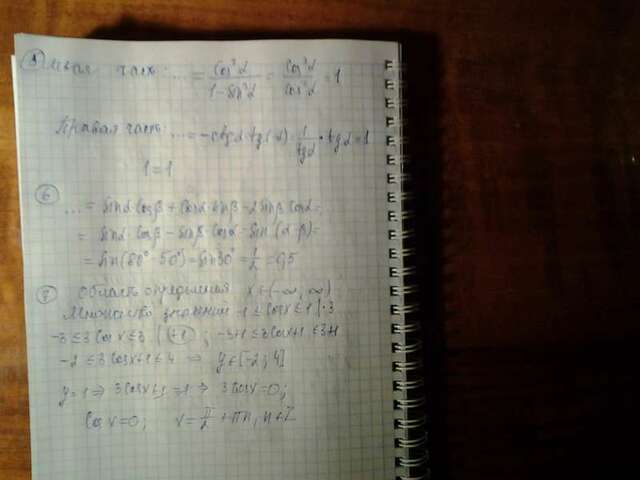 5 Левая часть: ... = cos²α / (1 - sin²α) = cos²α / cos²α = 1
Правая часть: ... = -ctg α · tg(-α) = 1/tgα · tgα = 1
1 = 1
6
... = sinα·cosβ + cosα·sinβ - 2 sinβ cosα =
= sinα·cosβ - sinβ·cosα = sin(α-β) =
= sin(80° - 50°) = sin30° = 1/2 = 0,5
7 область определения x ∈ (-∞; ∞)
Множество значений -1 ≤ cosx ≤ 1 |·3
-3 ≤ 3cosx ≤ 3 |+1 ; -3+1 ≤ 3cosx+1 ≤ 3+1
-2 ≤ 3cosx+1 ≤ 4 ⇒ y ∈ [-2; 4]
y = 1 ⇒ 3cosx+1 = 1 ⇒ 3cosx = 0;
cosx = 0; x = π/2 + πn, n ∈ Z